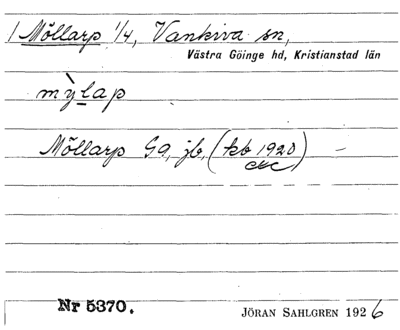 Möllarp 1/4, Vankiva sn,
Västra Göinge hd, Kristianstad län
mỳlap
Möllarp Ga, jb, (kb 1920) –
Nr 5370.
JÖRAN SAHLGREN 1926